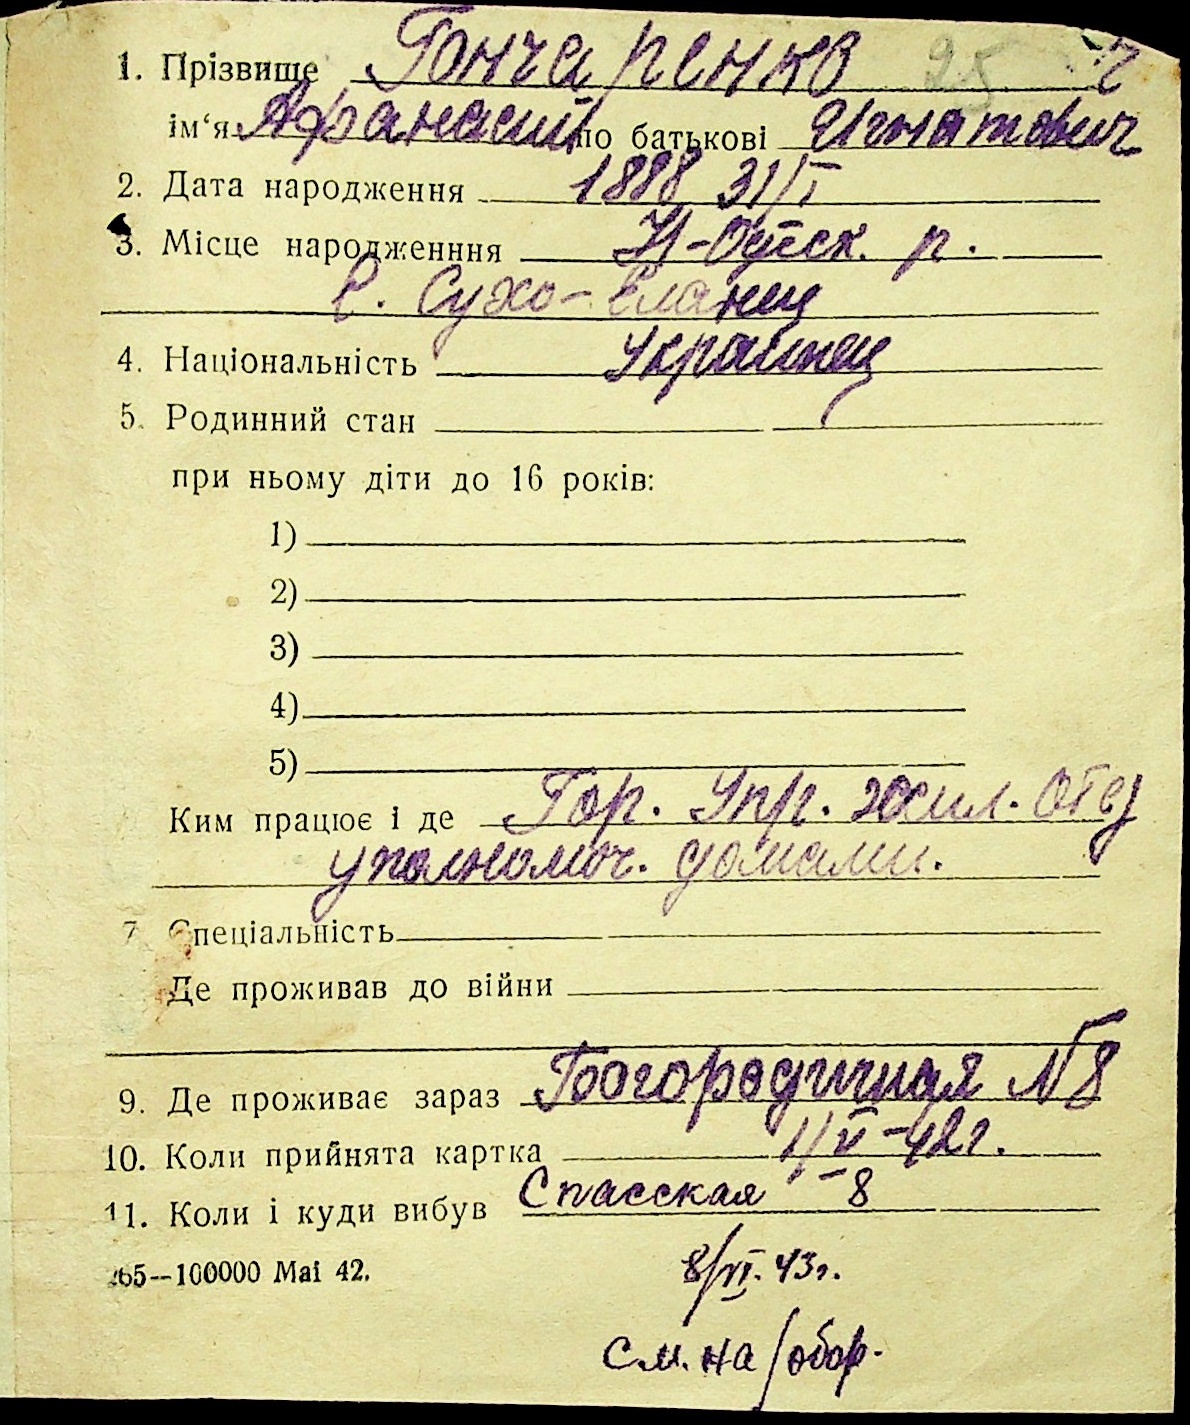 25 ч
1. Прізвище Гончаренко
ім‘я Афанасий по батькові Игнатович
2. Дата народження 1888 31/I
3. Місце народженння Н-Одесск. р.
с. Сухо-Еланец
4. Національність Украинец
5. Родинний стан
при ньому діти до 16 років:
1)
2)
3)
4)
5)
Ким працює і де Гор. Упр. жил. отд
уполномоч. домами.
7 Спеціальність
Де проживав до війни
9. Де проживає зараз Богородичная №8
10. Коли прийнята картка 1/V-42г.
11. Коли і куди вибув Спасская - 8
265—100000 Mai 42.
8/VI. 43г.
См. на обор.